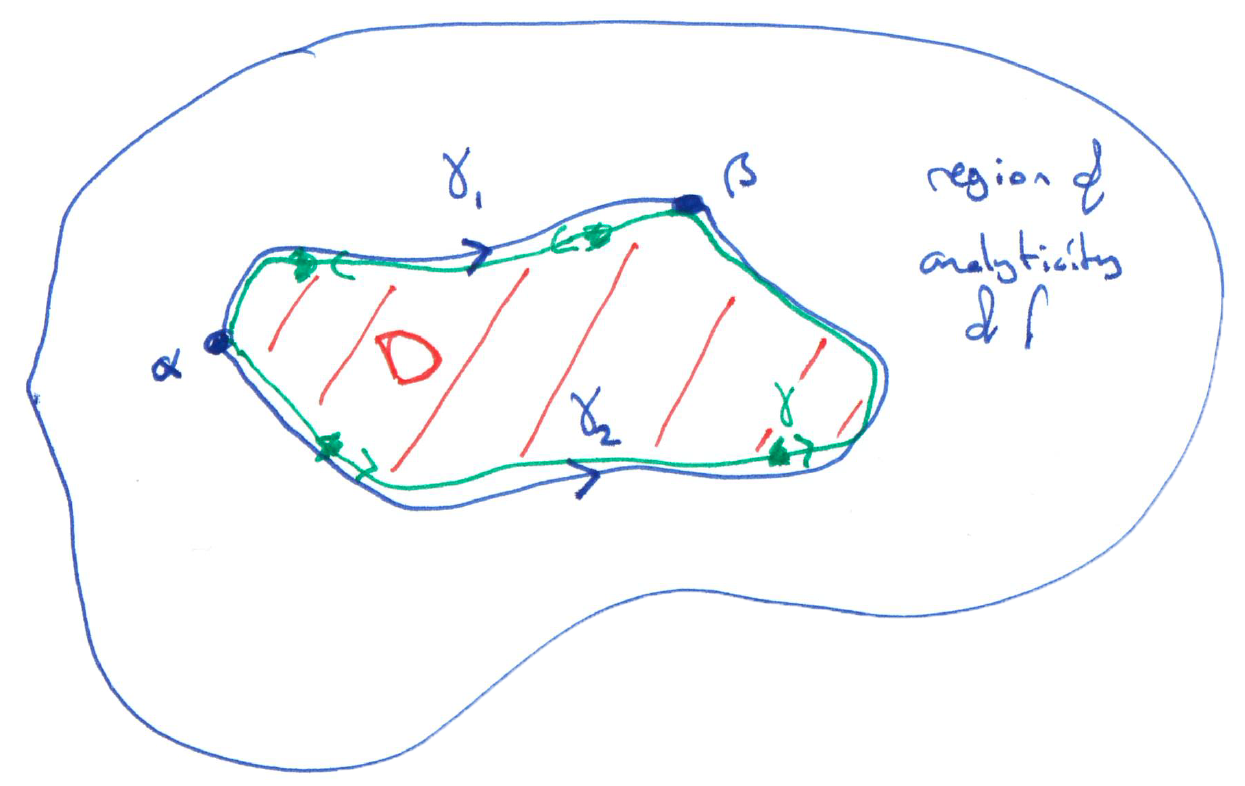 γ₁
β
region of
analyticity
of f
α
D
γ₂
γ